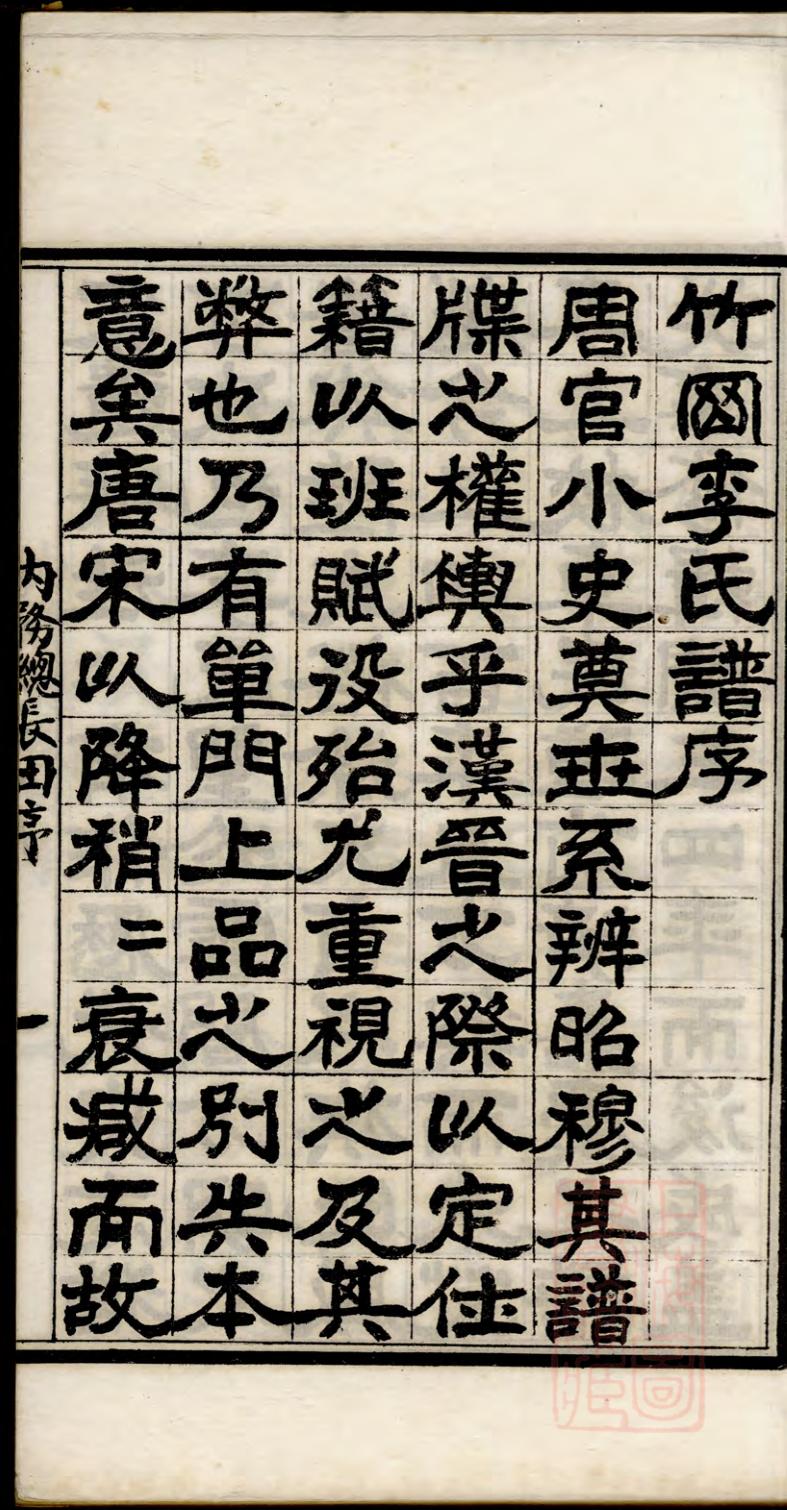 竹岡李氏譜序
周官小史奠世系辨昭穆其譜
牒之權輿乎漢晉之際以定仕
籍以班賦役殆尤重視之及其
弊也乃有單門上品之別失本
意矣唐宋以降稍二衰減而故
內務總長田序
一